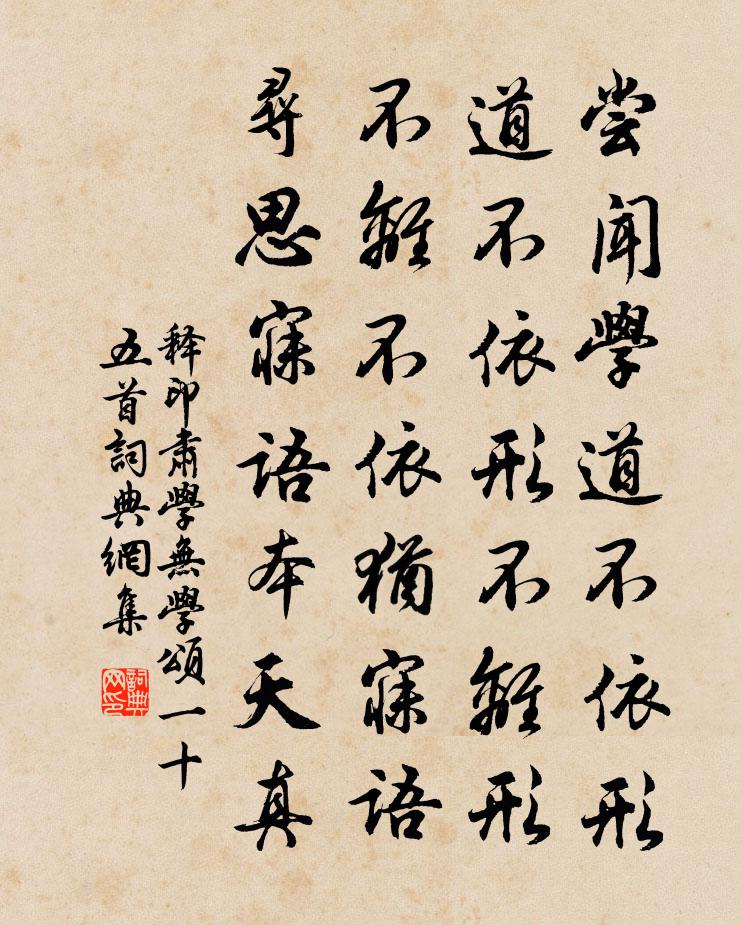 尝聞學道不依形
道不依形不離形
不離不依猶寐語
尋思寐語本天真
释印肅學無學頌一十
五首詞典網集
詞典网印